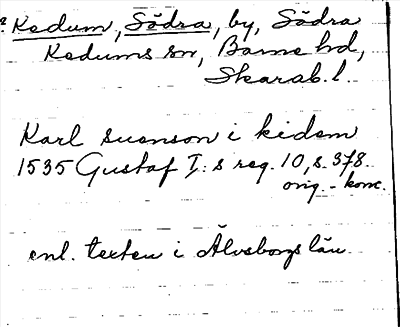 Kedum, Södra, by, Södra
Kedums sn, Barne hd,
Skarab. l.
Karl suenson i kidem
1535 Gustaf I:s reg. 10, s. 378.
orig. - konc.
enl. texten i Älvsborgs län